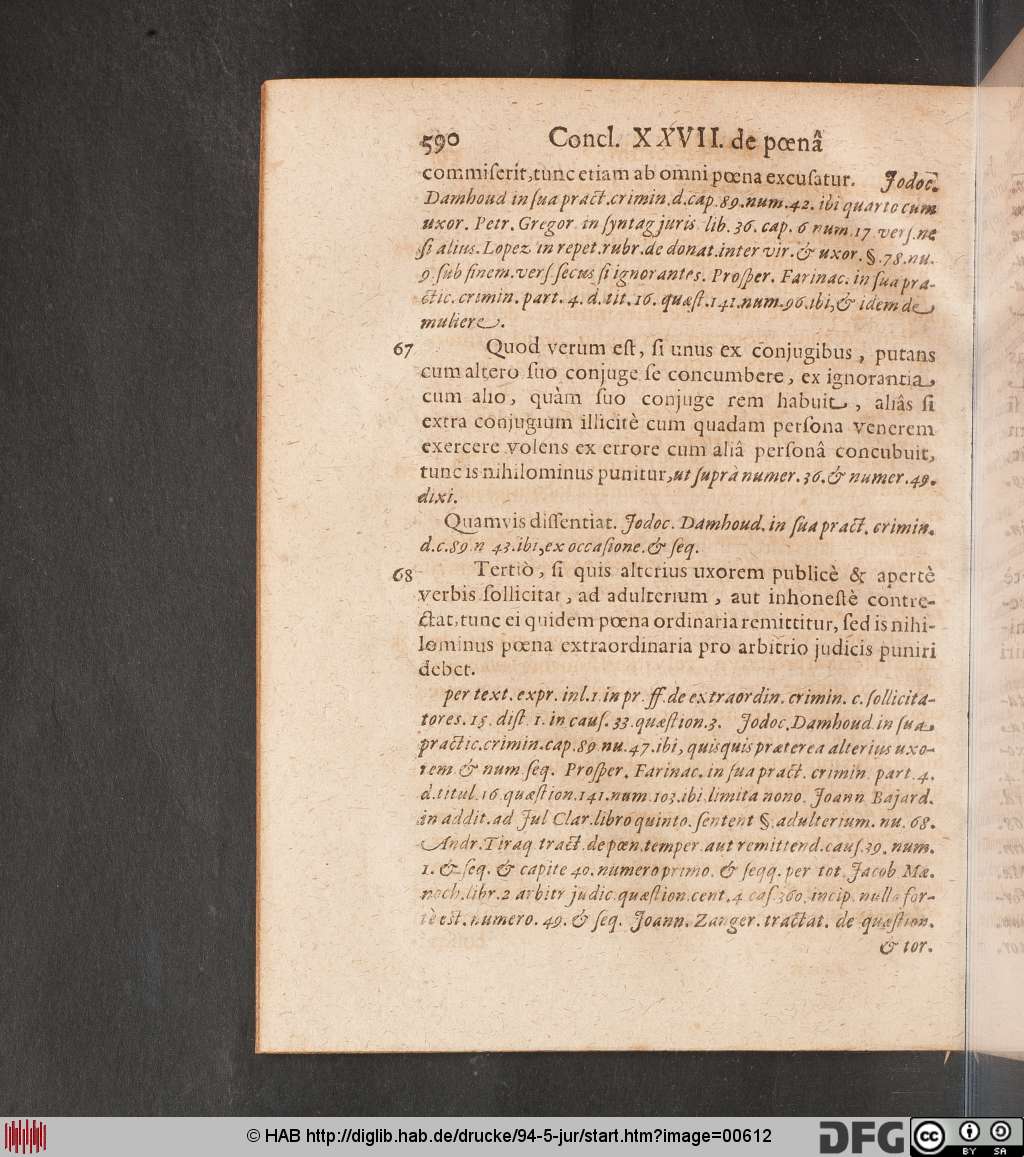 590 Concl. XXVII. de pœnâ
commiserit, tunc etiam ab omni pœna excusatur. Jodoc.
Damhoud in sua pract. crimin. d. cap. 89. num. 42. ibi quarto cum
uxor. Petr. Gregor. in syntag juris. lib. 36. cap. 6 num. 17. vers. ne
si alius. Lopez in repet. rubr. de donat. inter vir. & uxor. §. 78. nu.
9. sub finem. vers. secus si ignorantes. Prosper. Farinac. in sua pra-
ctic. crimin. part. 4. d. tit. 16. quæst. 141. num. 96. ibi, & idem de
muliere.
67 Quod verum est, si unus ex conjugibus, putans
cum altero suo conjuge se concumbere, ex ignorantia,
cum alio, quàm suo conjuge rem habuit, aliâs si
extra conjugium illicitè cum quadam persona venerem
exercere volens ex errore cum aliâ personâ concubuit,
tunc is nihilominus punitur, ut suprà numer. 36. & numer. 49.
dixi.
Quamvis dissentiat. Jodoc. Damhoud. in sua pract. crimin.
d. c. 89. n 43. ibi, ex occasione. & seq.
68 Tertiò, si quis alterius uxorem publicè & apertè
verbis sollicitat, ad adulterium, aut inhonestè contre-
ctat, tunc ei quidem pœna ordinaria remittitur, sed is nihi-
lominus pœna extraordinaria pro arbitrio judicis puniri
debet.
per text. expr. in l. 1. in pr. ff. de extraordin. crimin. c. sollicita-
tores. 15. dist. 1. in caus. 33. quæstion. 3. Jodoc. Damhoud. in sua
practic. crimin. cap. 89. nu. 47. ibi, quisquis præterea alterius uxo-
rem. & num. seq. Prosper. Farinac. in sua pract. crimin. part. 4.
d. titul. 16. quæstion. 141. num. 103. ibi limita nono. Joann. Bajard.
in addit. ad Jul Clar. libro quinto. sentent §. adulterium. nu. 68.
Andr. Tiraq. tract. de pœn. temper. aut remittend. caus. 39. num.
1. & seq. & capite 40. numero primo. & seqq. per tot. Jacob Mæ.
noch. libr. 2 arbitr judic. quæstion. cent. 4. cas. 360. incip. nulla for-
tè est. numero. 49. & seq. Joann. Zanger. tractat. de quæstion.
& tor.
© HAB http://diglib.hab.de/drucke/94-5-jur/start.htm?image=00612
DFG
cc BY SA